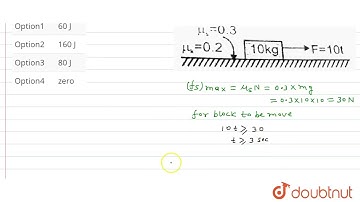 Option1 60 J
Option2 160 J
Option3 80 J
Option4 zero
μₛ=0.3
μₖ=0.2
10kg
F=10t
(fs)max = μsN = 0.3 x mg
= 0.3x10x10 = 30N
for block to be move
10t ≥ 30
t ≥ 3 sec
doubtnut